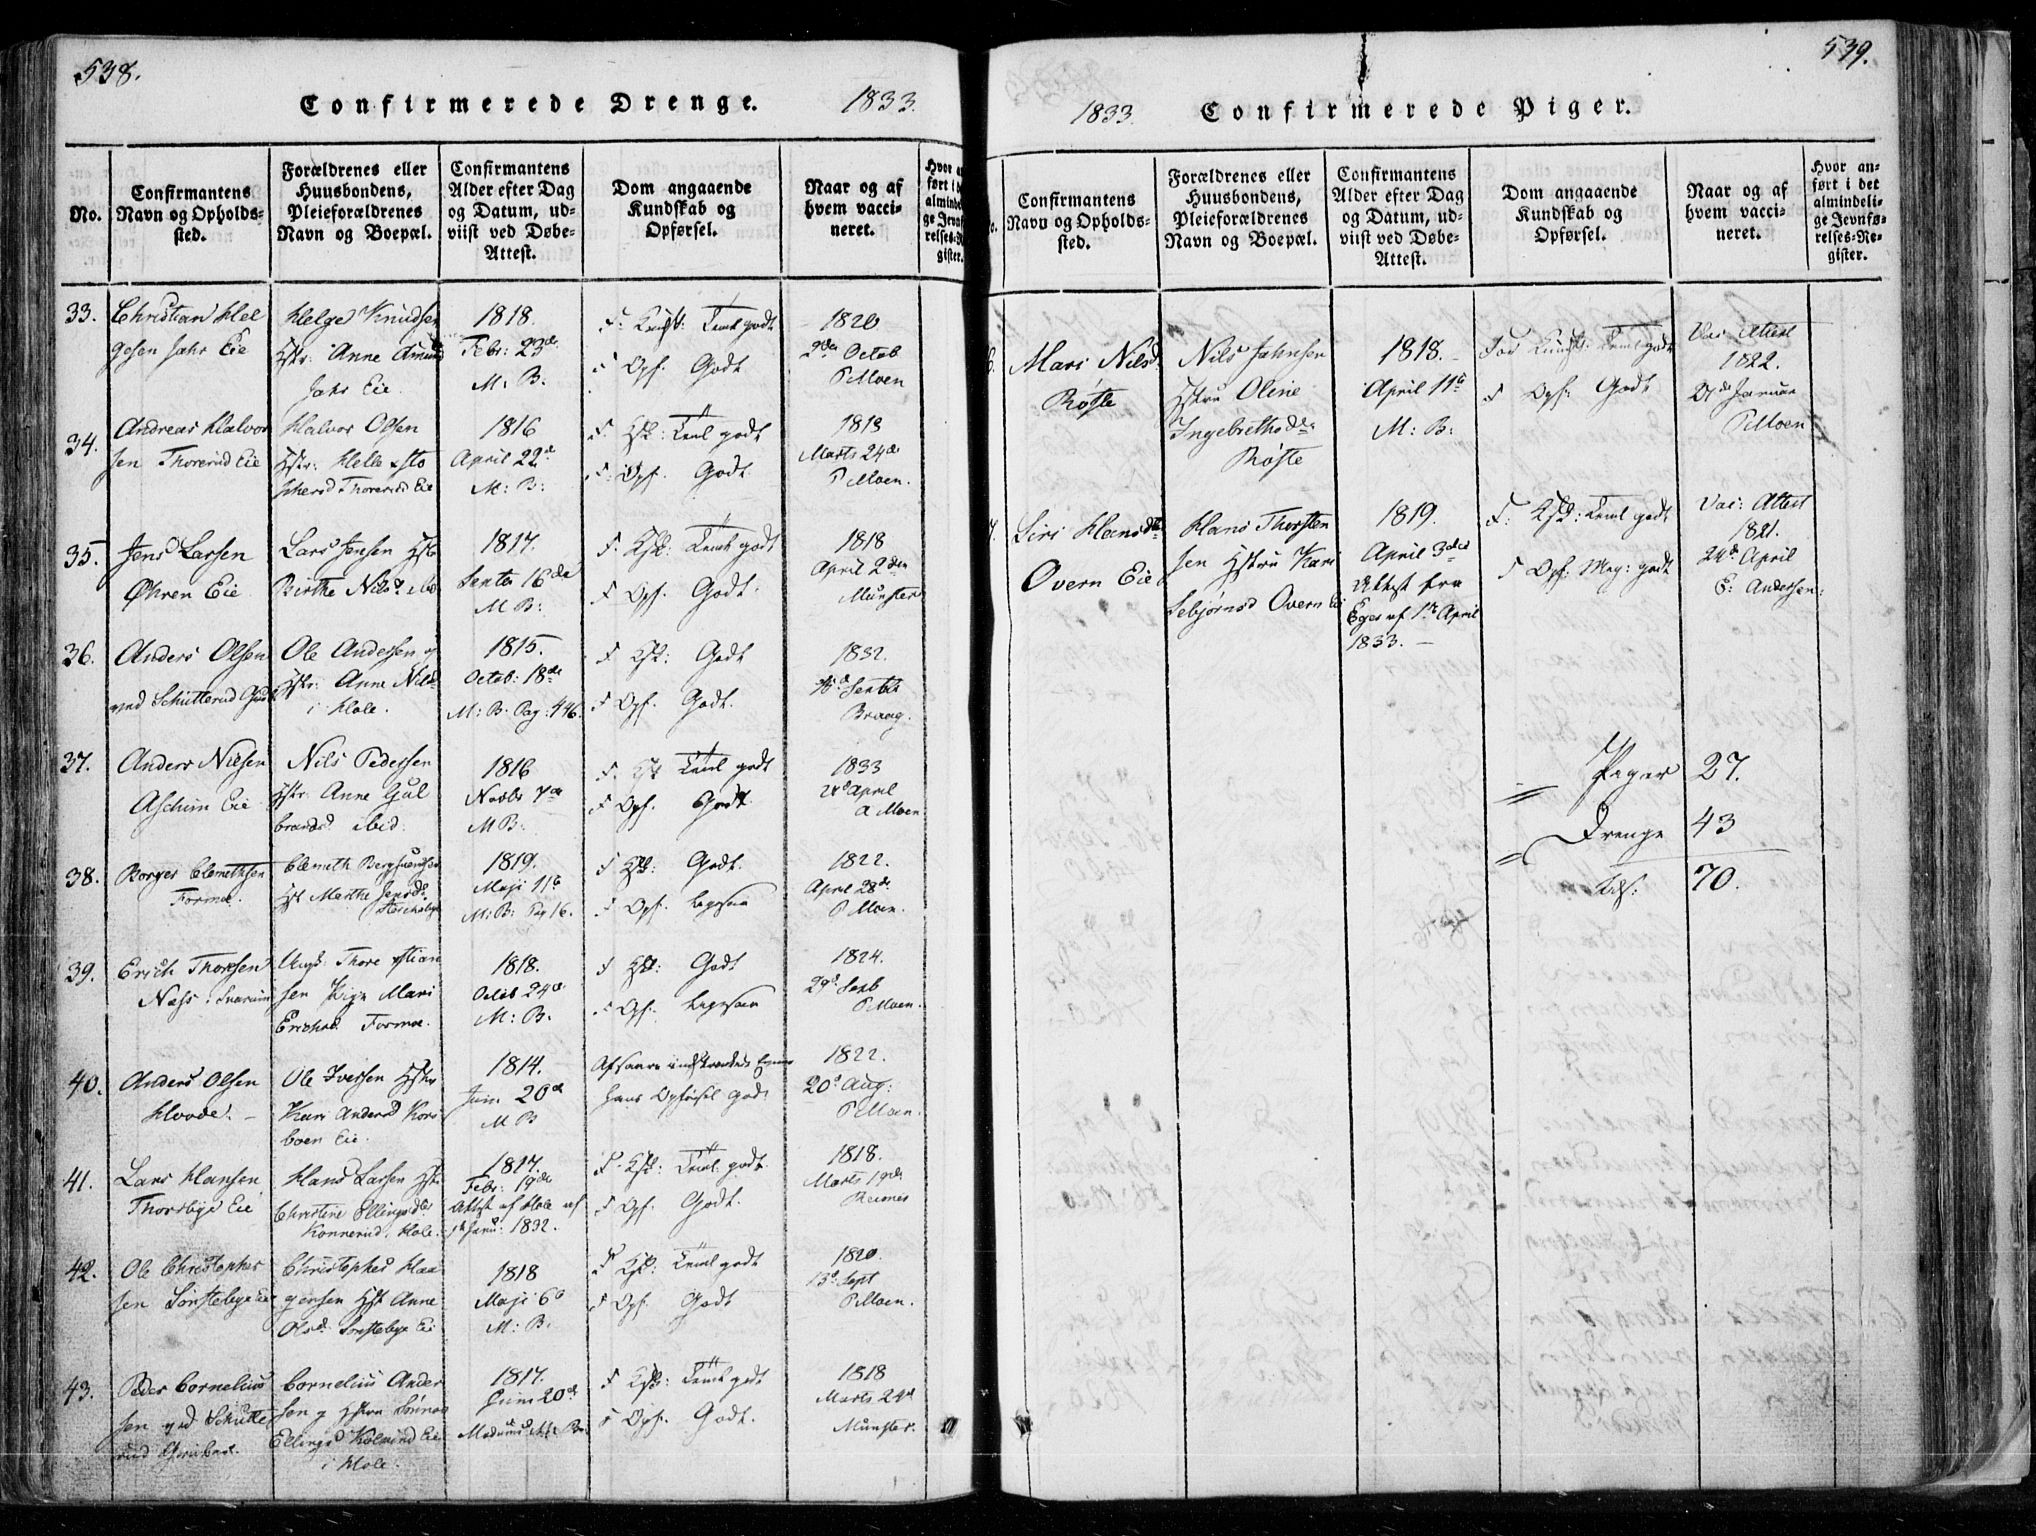 538.
Confirmerede Drenge. 1833.
No.
Confirmantens
Navn og Opholds-
sted.
Forældrenes eller
Huusbondens,
Pleieforældrenes
Navn og Boepæl.
Confirmantens
Alder efter Dag
og Datum, ud-
viist ved Døbe-
Attest.
Dom angaaende
Kundskab og
Opførsel.
Naar og af
hvem vacci-
neret.
33.
Christian Hel
gesen Jahr Eie
Helge Knudsen
Hstr: Anne Amund
Jahr Eie.
1818.
Febr: 23de
M: B.
F. Kndsk: Teml godt
F Opf: Godt
1820
2den Octob
P Moen
34.
Andreas Halvor
sen Thorerud Eie
Halvor Olsen
Hstr: Helle
Thorerud Eie
1816
April 22d
M: B:
F. Ksk: Teml godt
F. Opf. Godt
1818
Marts 24de
P Moen.
35.
Jens Larsen
Øhren Eie
Lars Jensen Hstr
Birthe Nilsd ibid
1817.
Septer 16de
M B:
F. Ksk: Teml godt
F Opf. Godt.
1818
April 2den
Münster
36.
Anders Olsen
ved Schutterud
Ole Andersen og
Hstr: Anne Nilsd
i Hole.
1815.
Octob: 18de
M: B. Pag: 446.
F Ksk: Godt
F Opf. Godt.
1832.
Septbr
Braag.
37.
Anders Nielsen
Aschim Eie
Nils Pedersen
Hstr: Anne Gul
brandsd ibid.
1816
Novbr 7de
M B:
F. Ksk Teml godt
F Opf. Godt.
1833
April
A Moen
38.
Borger Clemethsen
Formoe.
Clemeth
Hst Marthe Jensd
1819.
Maji 11te
M: B: Pag 16.
F Ksk: Godt.
F Opf.
1822.
April 28de
P Moen.
39.
Erich Thoresen
Næss i Snarum
Ungk: Thore Xstian
sen Pige Mari
Erichsd Formoe.
1818.
Octob 24de
M: B.
F Ksk: Godt
F Opf:
1824.
29d Septb
P Moen.
40.
Anders Olsen
Hovde.
Ole Iversen Hstr
Kari Andersd Kors
boen Eie.
1814.
Juni 20de
M B
hans Opførsel godt
1822.
20d Aug:
P Moen.
41.
Lars Hansen
Thorsbye Eie
Hans Larsen Hstr
Christine Ellingsdtr
Konnerud, Hole.
1817.
Febr: 19de
Attest af Hole af
Janu: 1832.
F. Ksk: Teml godt
F Opf. Godt.
1818.
Marts 19de
42.
Ole Christopher
sen Sønstebye Eie
Christopher Haa
gensen Hst Anne
Olsd Sønstebye Eie
1818
Maji 6te
M: B.
F Ksk: Teml godt
F Opf. Godt
1820.
13d Sept
P Moen.
43.
Peder Cornelius
sen ved Schutte
rud
Cornelius Ander
sen og Hstru
Ellingsd Eie
i Hole.
1817.
Juni 20de
Modums M: B.
F Ksk: Teml godt
F Opf. Godt.
1818
Marts 24d
Münster.
539.
1833. Confirmerede Piger.
Confirmantens
Navn og Opholds-
sted.
Forældrenes eller
Huusbondens,
Pleieforældrenes
Navn og Boepæl.
Confirmantens
Alder efter Dag
og Datum, ud-
viist ved Døbe-
Attest.
Dom angaaende
Kundskab og
Opførsel.
Naar og af
hvem vacci-
neret.
Hvor an-
ført i det
almindeli-
ge Jevnfø-
relses-Re-
gister.
Mari Nilsd
Røste
Nils Johnsen
Hstru Oline
Ingebrethsd
Røste
1818.
April 11te
M: B:
For Kundsk: Teml godt
F Opf: Godt
Vac: Attest
1822.
Januar
P Moen
Siri Hansdtr
Overn Eie
Hans Thorsten
sen Hstru Kari
Overn Eie
1819.
April 3die
Attest fra
Eger af 1ste April
1833.
F. Ksk: Teml godt
F Opf: Meg: godt
Vac: Attest
1821.
24de April
E: Andersen:
Piger 27.
Drenge 43
70.